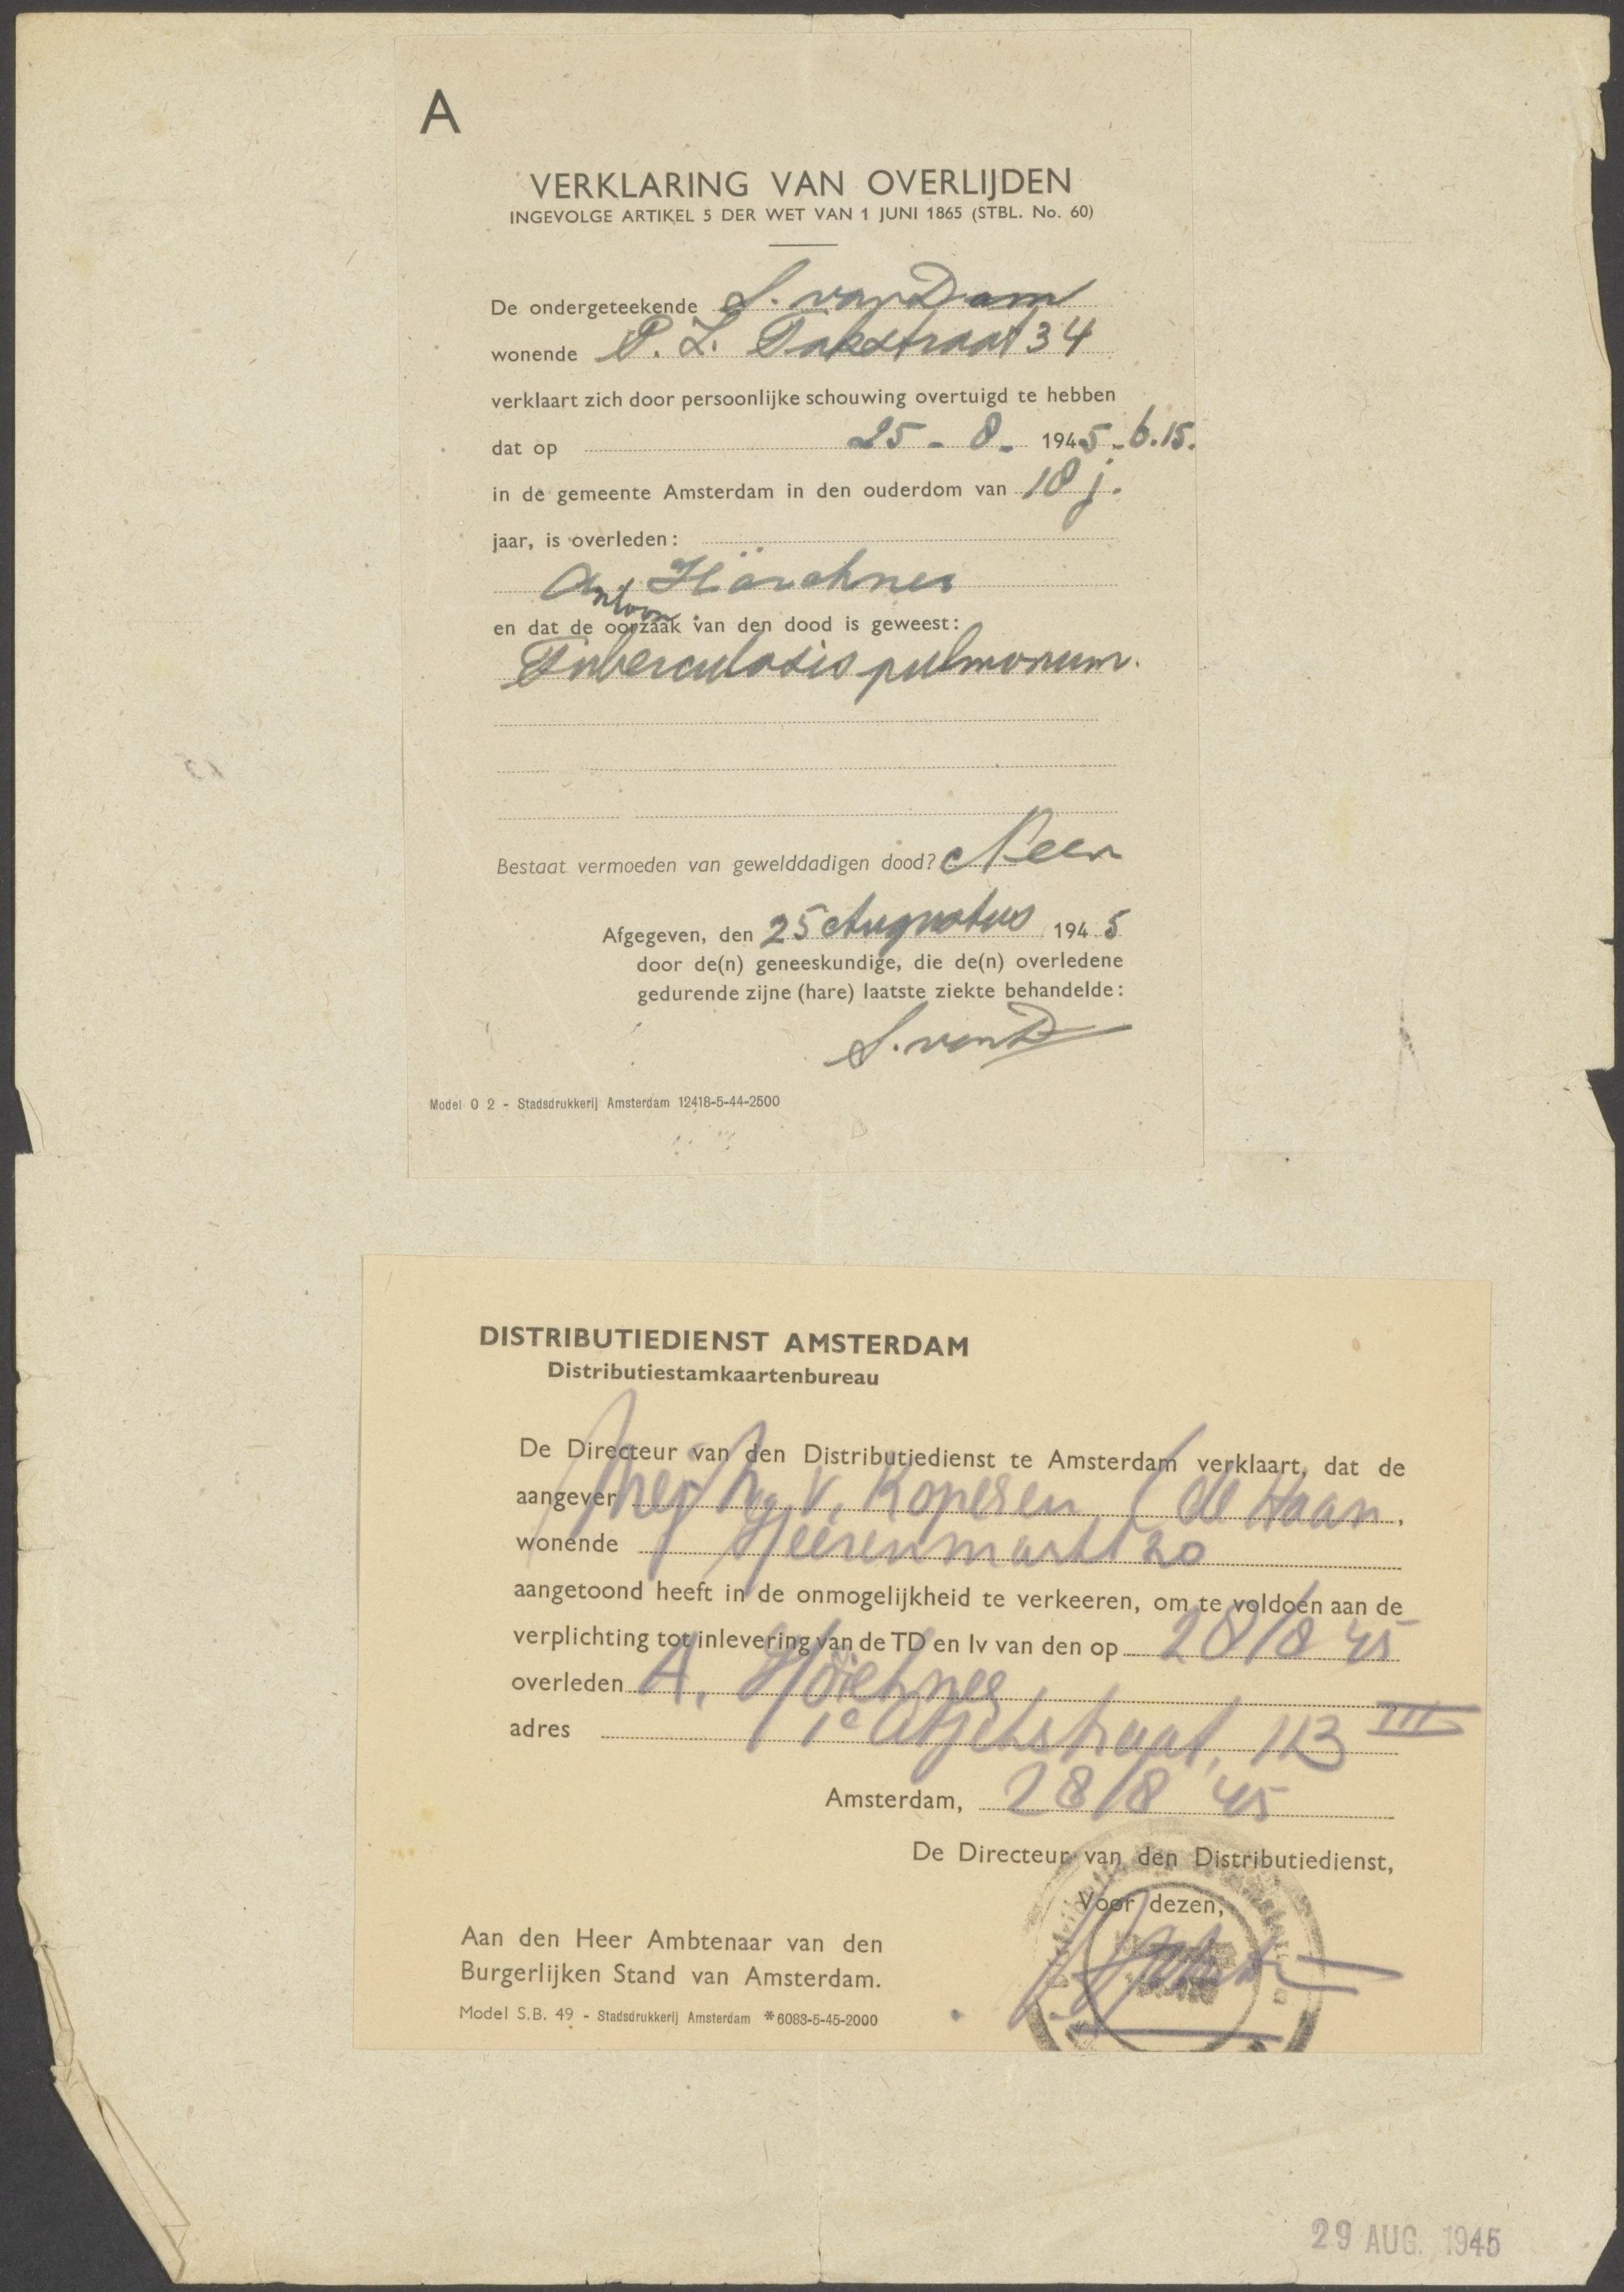 A
VERKLARING VAN OVERLIJDEN
INGEVOLGE ARTIKEL 5 DER WET VAN 1 JUNI 1865 (STBL. No. 60)
De ondergeteekende S. van Dam
wonende P. L. Takstraat 34
verklaart zich door persoonlijke schouwing overtuigd te hebben
dat op 25 - 8 - 1945 - 6.15.
in de gemeente Amsterdam in den ouderdom van 18 j.
jaar, is overleden:
Antoon Härchner
en dat de oorzaak van den dood is geweest:
Tuberculosis pulmonum.
Bestaat vermoeden van gewelddadigen dood? Neen
Afgegeven, den 25 Augustus 1945
door de(n) geneeskundige, die de(n) overledene
gedurende zijne (hare) laatste ziekte behandelde:
S. van D
Model O 2 - Stadsdrukkerij Amsterdam 12418-5-44-2500
DISTRIBUTIEDIENST AMSTERDAM
Distributiestamkaartenbureau
De Directeur van den Distributiedienst te Amsterdam verklaart, dat de
aangever v. Koperen (de Haan,
wonende Heerenmarkt 20
aangetoond heeft in de onmogelijkheid te verkeeren, om te voldoen aan de
verplichting tot inlevering van de TD en Iv van den op 28/8 45
overleden A. Hörchner
adres 1e Atjehstraat, 113 III
Amsterdam, 28/8 45
De Directeur van den Distributiedienst,
Voor dezen,
Aan den Heer Ambtenaar van den
Burgerlijken Stand van Amsterdam.
Model S.B. 49 - Stadsdrukkerij Amsterdam *6083-5-45-2000
29 AUG. 1945